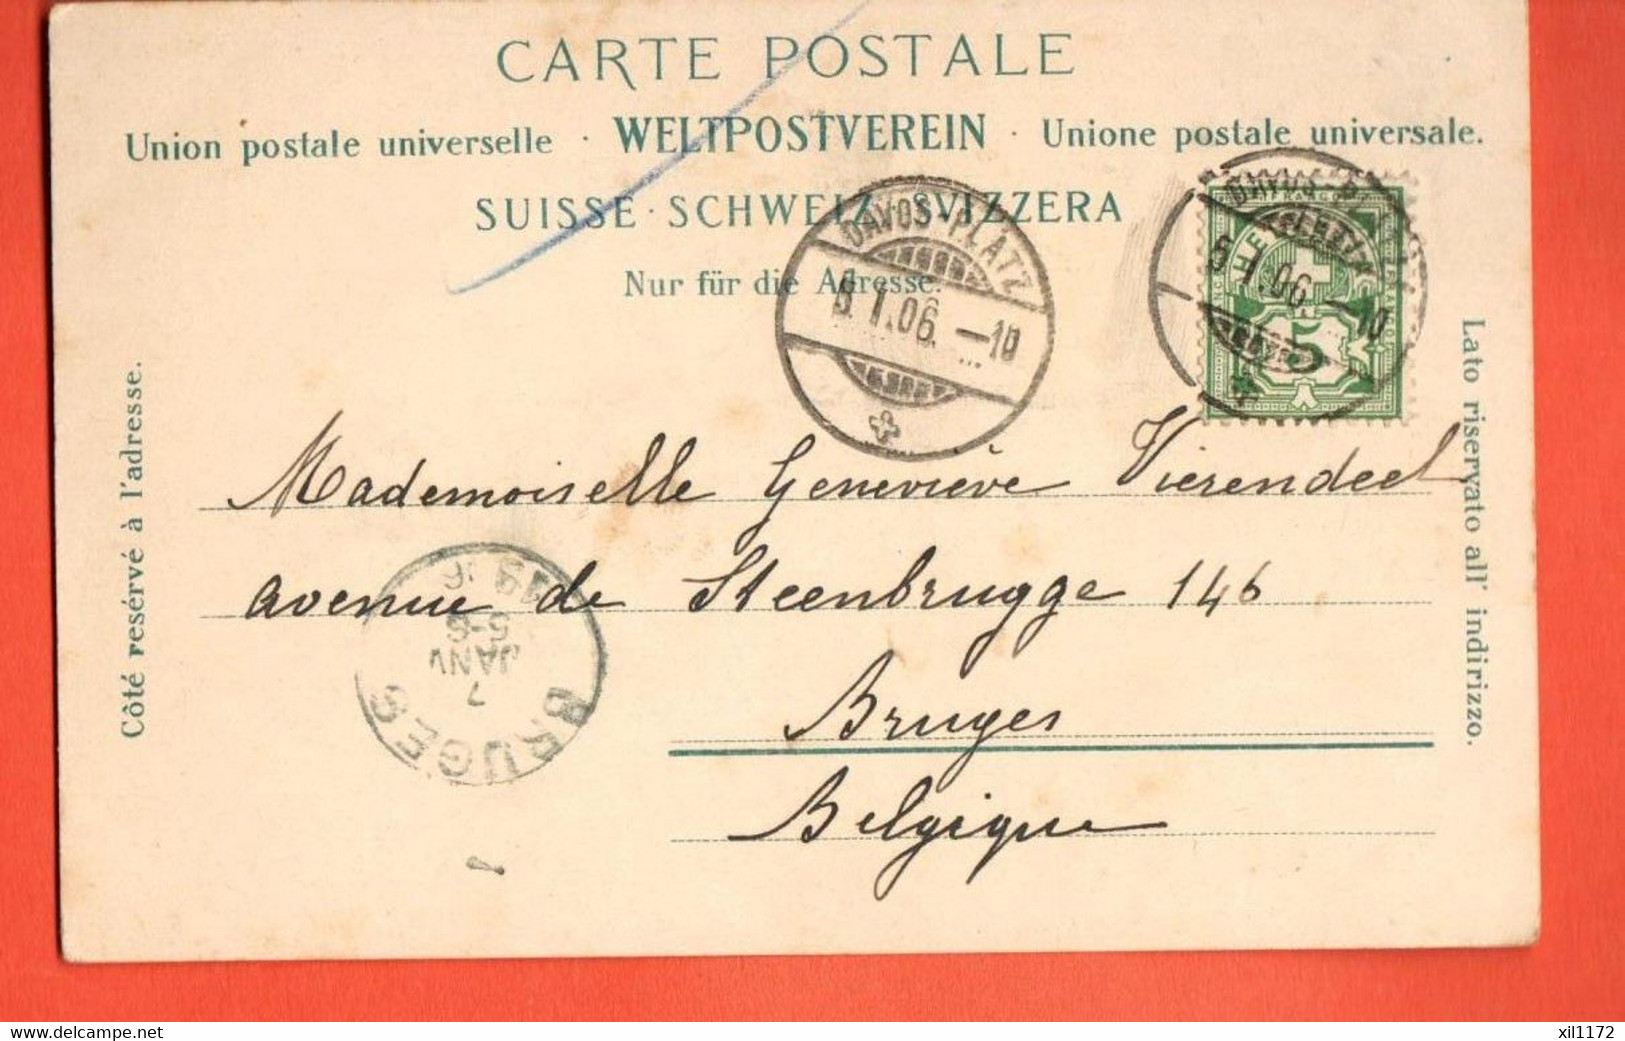 CARTE POSTALE
Union postale universelle · WELTPOSTVEREIN · Unione postale universale.
SUISSE · SCHWEIZ · SVIZZERA
Nur für die Adresse.
DAVOS-PLATZ
5.1.06.-10
DAVOS-PLATZ
5.1.06-10
FRANCO
HELVETIA
5
Côté resérvé à l'adresse.
Lato riservato all' indirizzo.
Mademoiselle Geneviève Vierendeel
avenue de Steenbrugge 146
Bruges
Belgique
BRUGES
7
JANV
5-6
19 6
Delcampe.net
xil1172